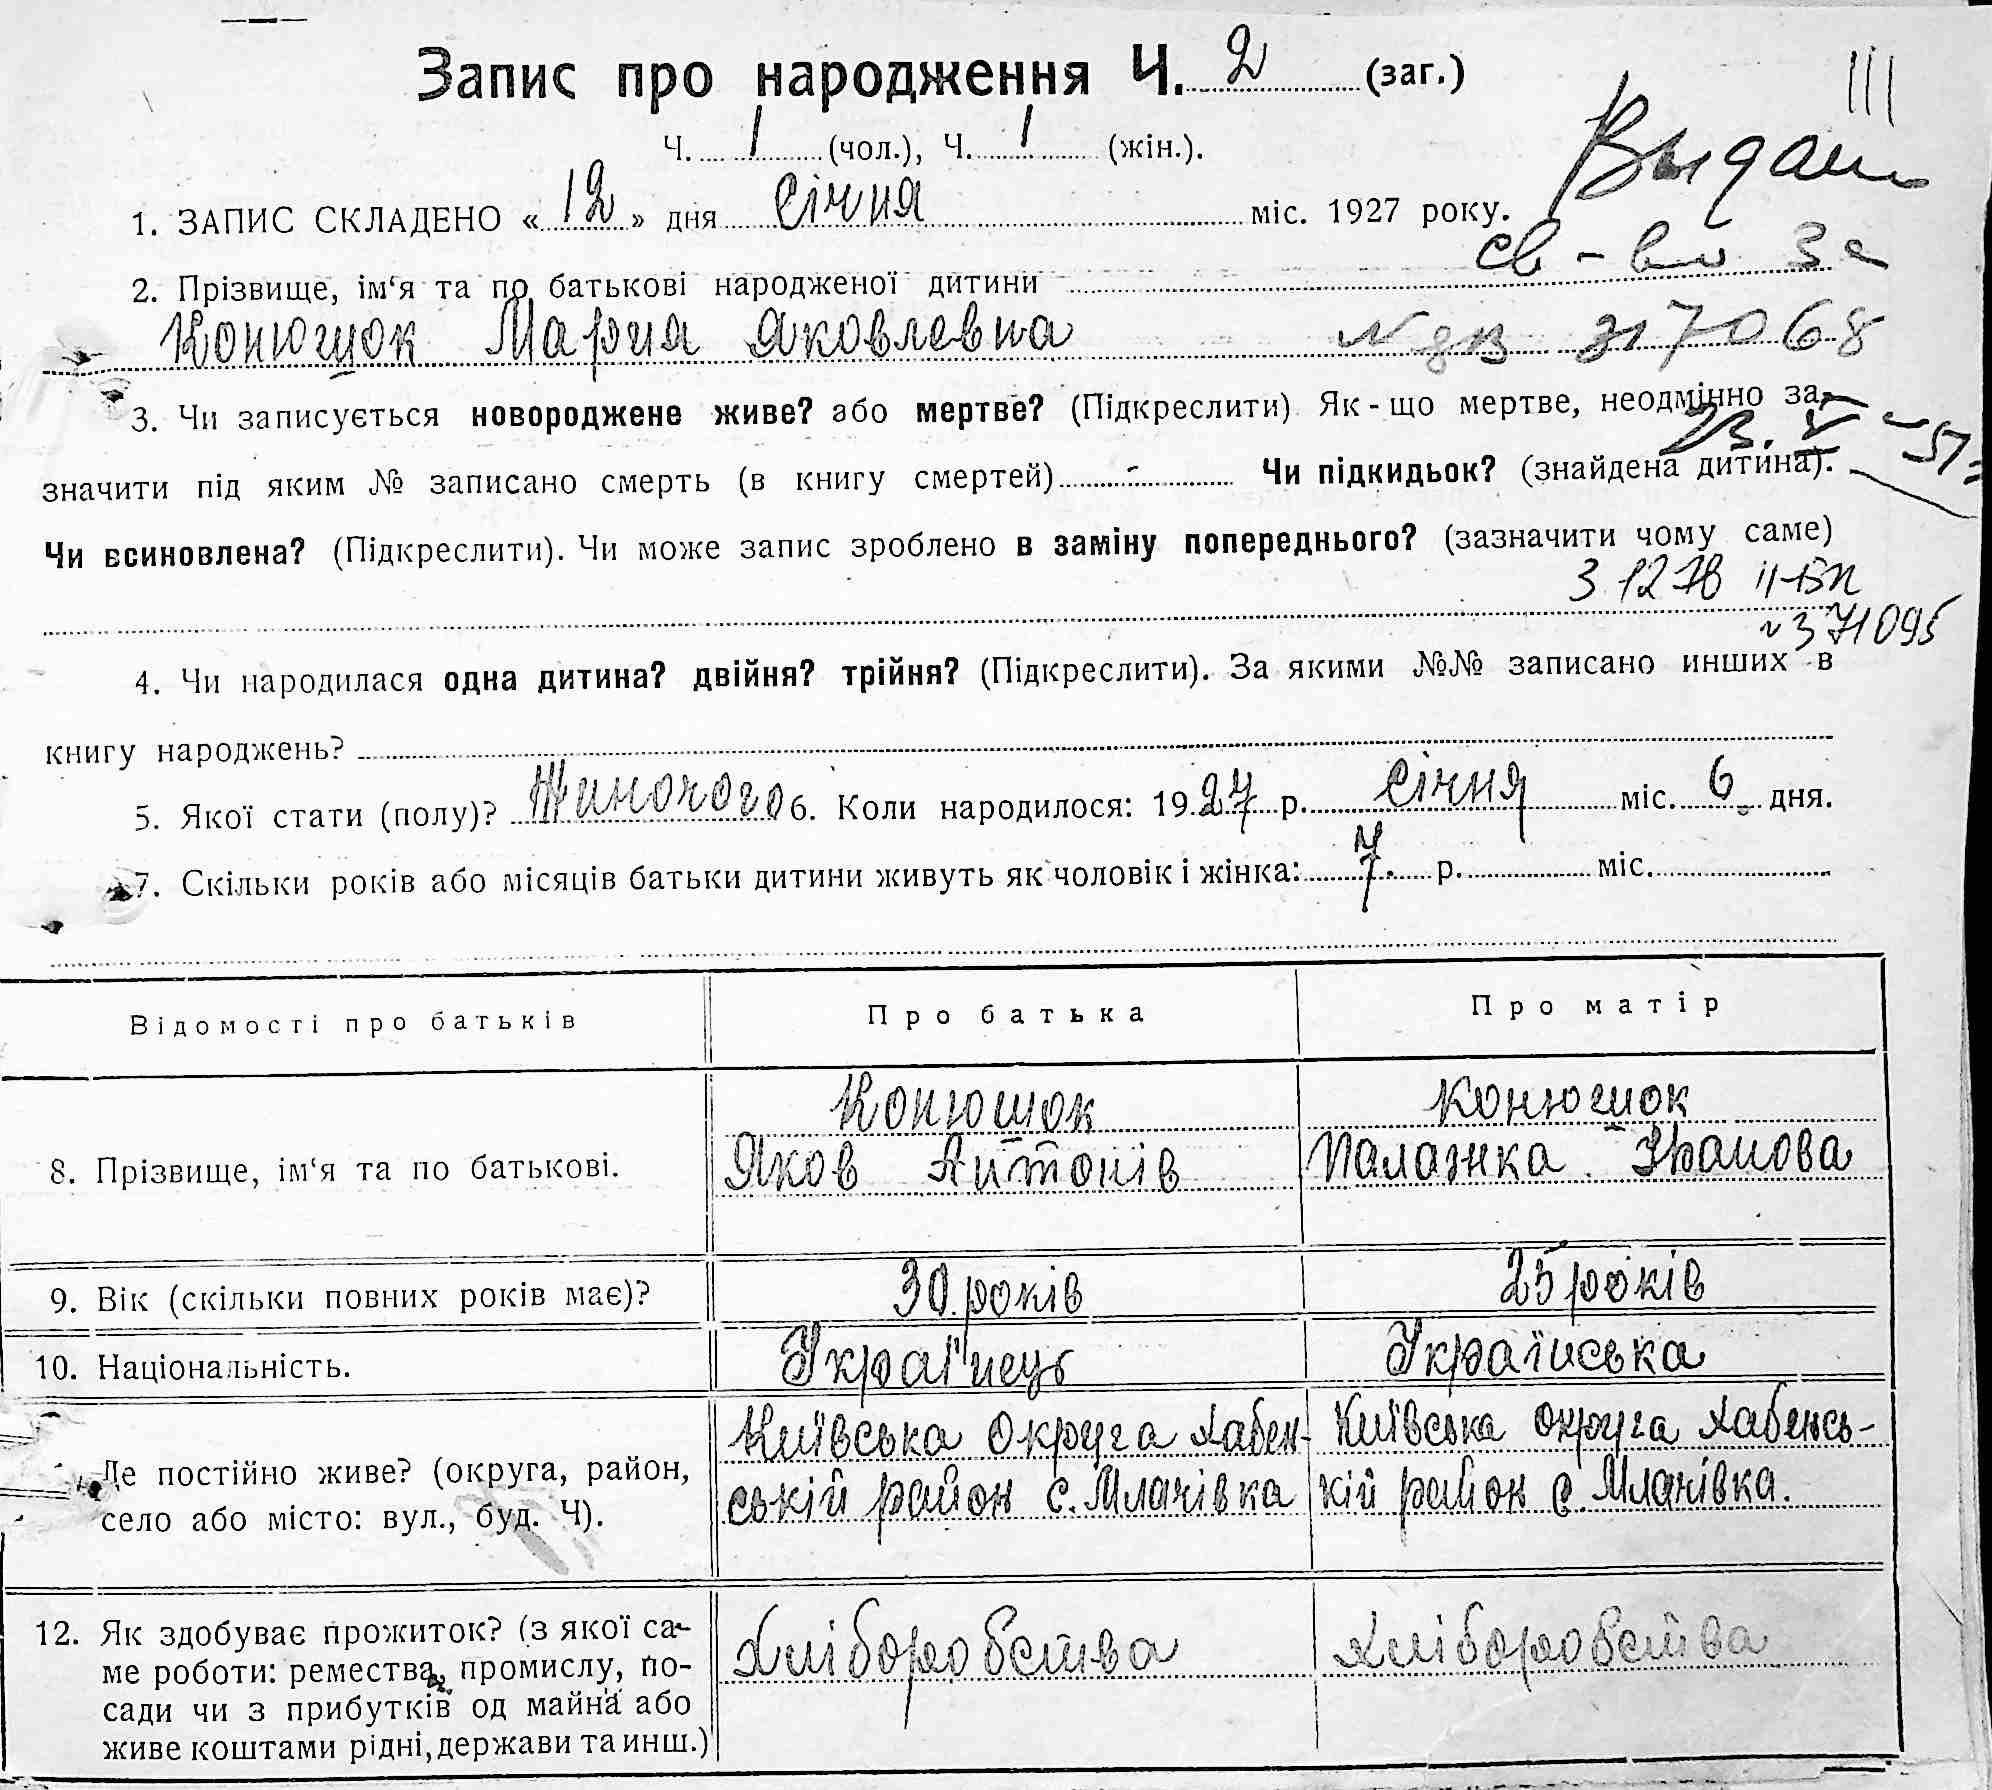 Запис про народження Ч. 2 (заг.)
Ч. 1 (чол.), Ч. 1 (жін.).
Выдан
1. ЗАПИС СКЛАДЕНО « 12 » дня січня міс. 1927 року.
св-во за
2. Прізвище, ім‘я та по батькові народженої дитини
Конюшок Мария Яковлевна
317068
3. Чи записується новороджене живе? або мертве? (Підкреслити) Як-що мертве, неодмінно за-
23. V - 51
значити під яким № записано смерть (в книгу смертей) - Чи підкидьок? (знайдена дитина).
Чи всиновлена? (Підкреслити). Чи може запис зроблено в заміну попереднього? (зазначити чому саме)
3 12 78 II-БК
№371095
4. Чи народилася одна дитина? двійня? трійня? (Підкреслити). За якими №№ записано инших в
книгу народжень?
5. Якої стати (полу)? Жиночого 6. Коли народилося: 1927 р. січня міс. 6 дня.
7. Скільки років або місяців батьки дитини живуть як чоловік і жінка: 7 р. міс.
Відомості про батьків Про батька Про матір
8. Прізвище, ім‘я та по батькові.
Конюшок
Яков Антонів
Конюшок
Палажка Іванова
9. Вік (скільки повних років має)? 30 років 25 років
10. Національність. Українець Українська
Де постійно живе? (округа, район,
село або місто: вул., буд. Ч).
Київська округа Хабен-
ській район с. Млачівка
Київська округа Хабенсь-
кій район с. Млачівка.
12. Як здобуває прожиток? (з якої са-
ме роботи: ремества, промислу, по-
сади чи з прибутків од майна або
живе коштами рідні, держави та инш.)
Хліборобства
Хліборобства